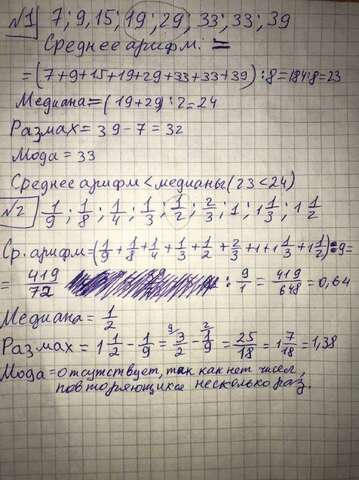 №1 7; 9, 15; 19, 29; 33; 33; 39
Среднее арифм. =
=(7+9+15+19+29+33+33+39):8=184:8=23
Медиана=(19+29):2=24
Размах=39-7=32
Мода=33
Среднее арифм<медианы(23<24)
№2 1/9; 1/8; 1/4; 1/3; 1/2; 2/3; 1; 1 1/3; 1 1/2
Ср. арифм-(1/9+1/8+1/4+1/3+1/2+2/3+1+1 1/3+1 1/2):9=
= 419/72 : 9/1 = 419/648 = 0,64
Медиана= 1/2
Размах= 1 1/2 - 1/9 = 9 3/2 - 2 1/9 = 25/18 = 1 7/18 = 1,38
Мода=отсутствует, так как нет чисел,
повторяющихся несколько раз.